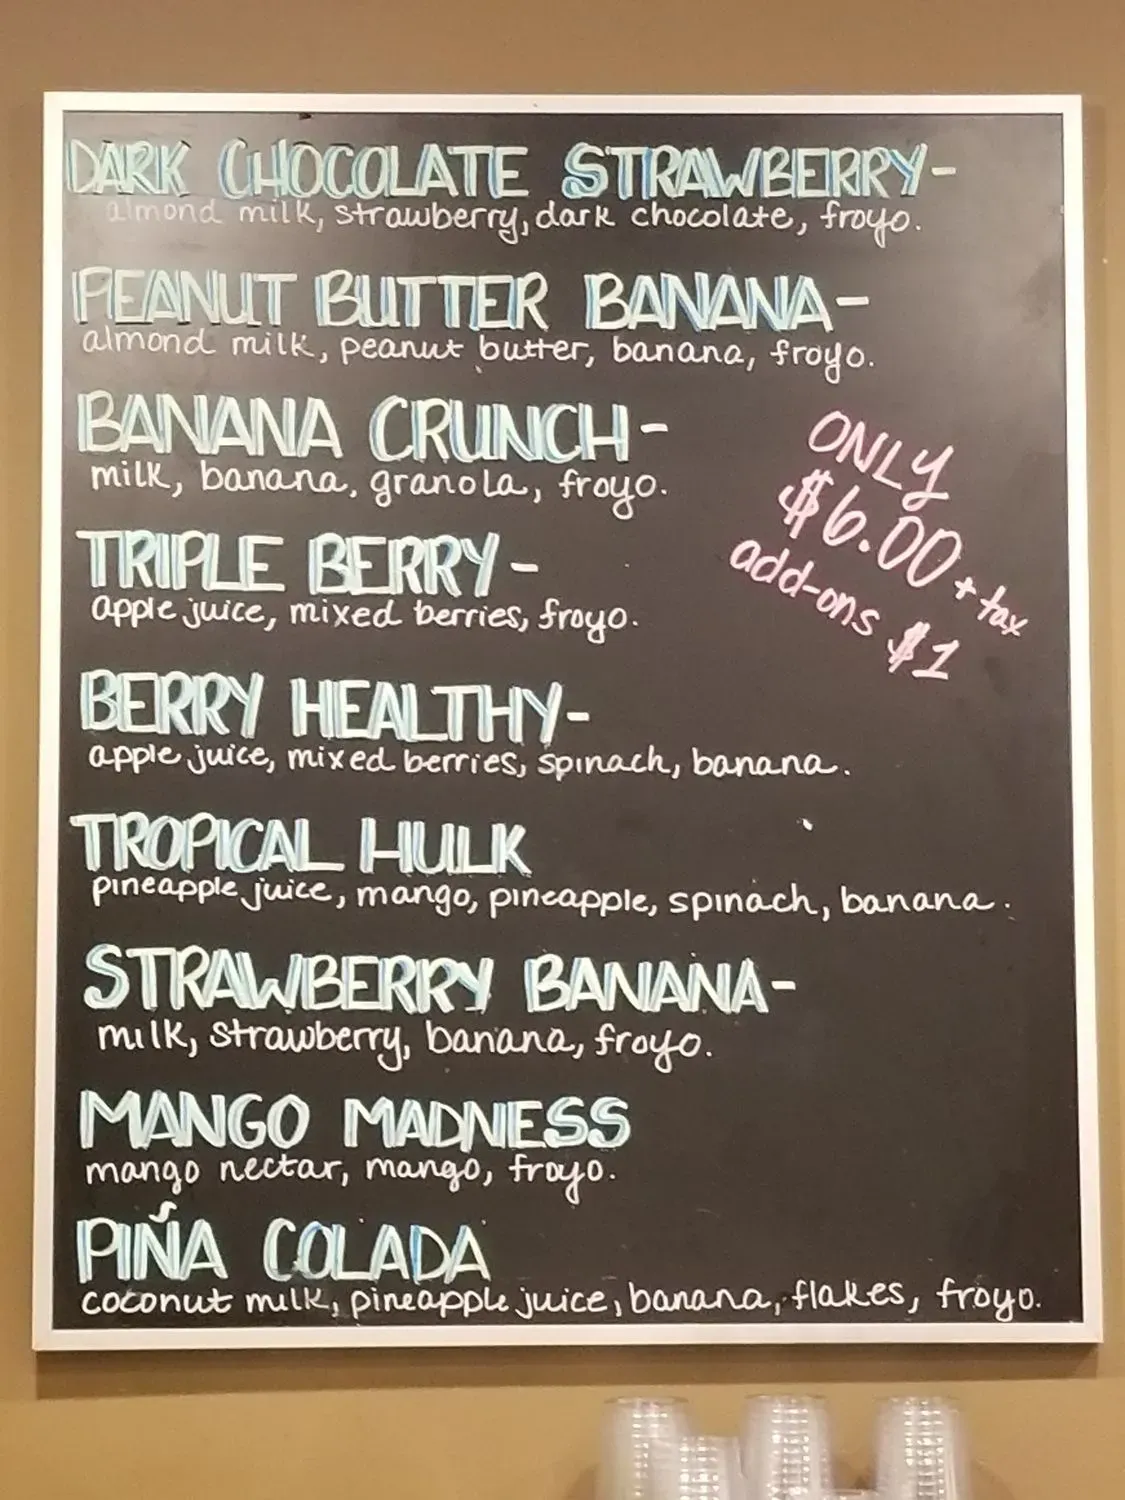 DARK CHOCOLATE STRAWBERRY-
almond milk, strawberry, dark chocolate, froyo.
PEANUT BUTTER BANANA-
almond milk, peanut butter, banana, froyo.
BANANA CRUNCH-
milk, banana, granola, froyo.
ONLY
$6.00 + tax
add-ons $1
TRIPLE BERRY-
apple juice, mixed berries, froyo.
BERRY HEALTHY-
apple juice, mixed berries, spinach, banana.
TROPICAL HULK
pineapple juice, mango, pineapple, spinach, banana.
STRAWBERRY BANANA-
milk, strawberry, banana, froyo.
MANGO MADNESS
mango nectar, mango, froyo.
PIÑA COLADA
coconut milk, pineapple juice, banana, flakes, froyo.